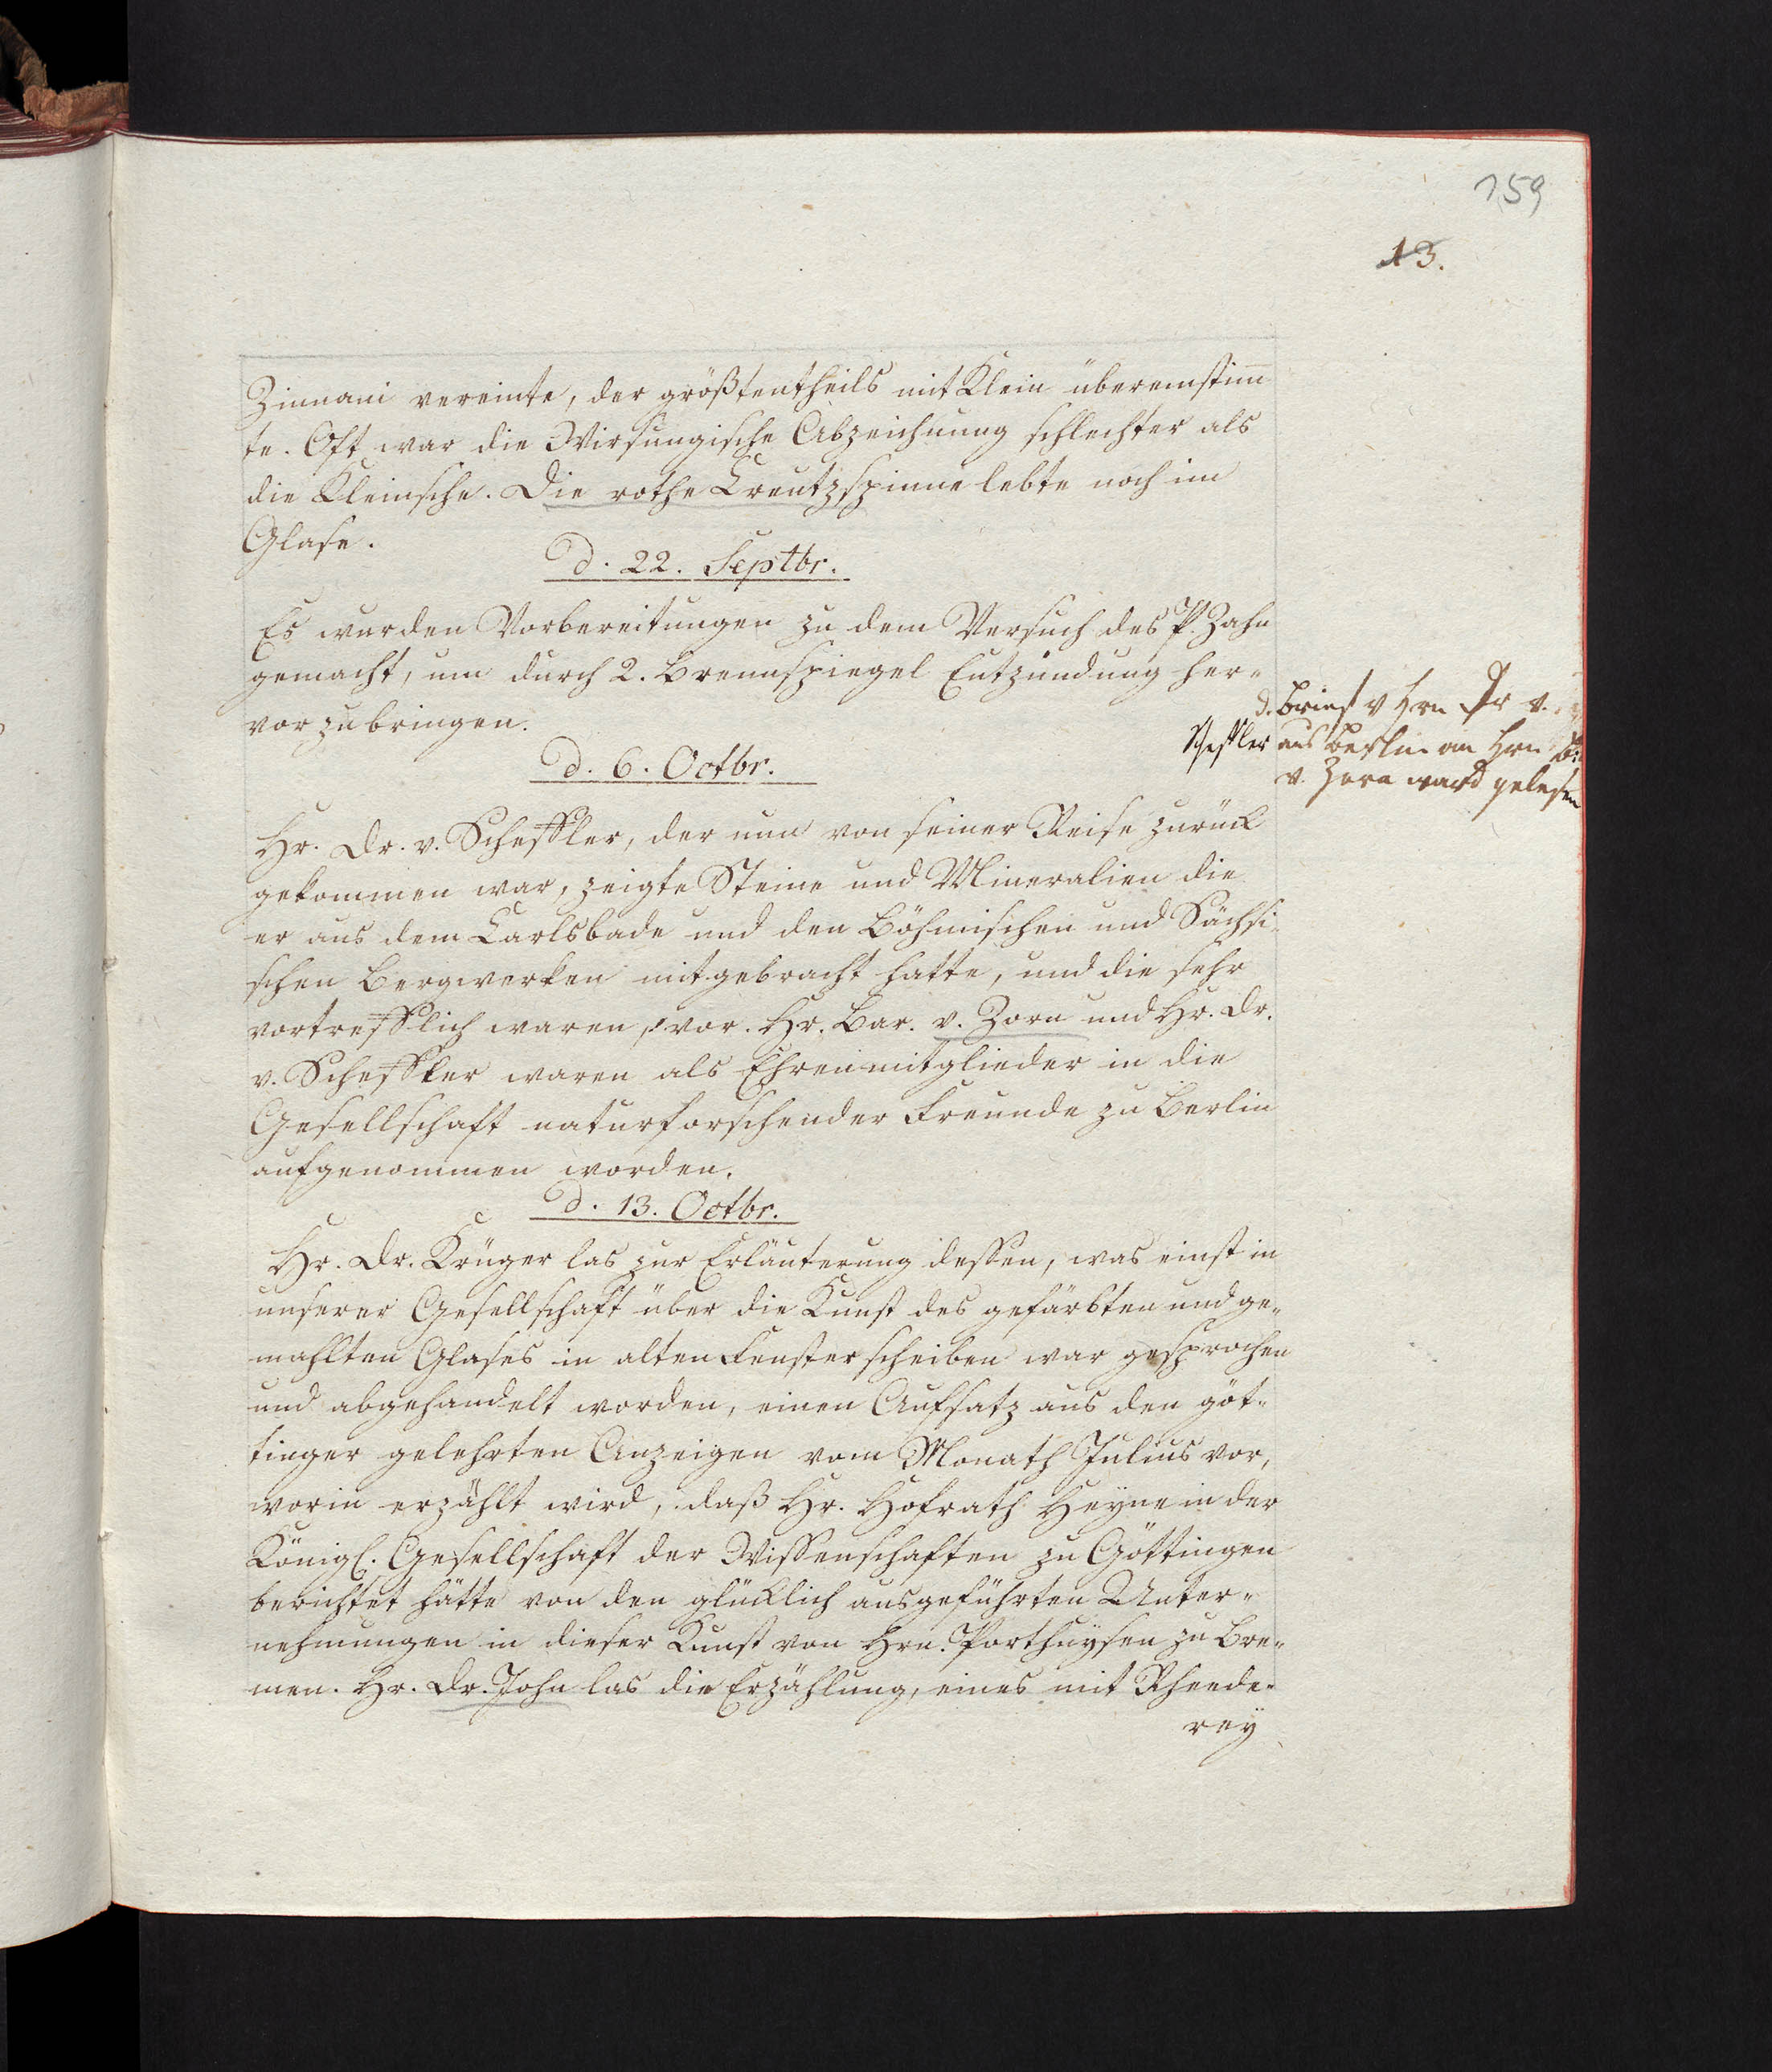 159
13.
Zinnani vereinte, der größtentheils mit Klein übereinstim̄
te. Oft war die Wirsungische Abzeichnung schlechter als
die Kleinsche. Die rothe Creutzspinne lebte noch im
Glase.
d. 22. Septbr.
Es wurden Vorbereitungen zu dem Versuch des P. Zahn
gemacht, um durch 2. Brennspiegel Entzündung her-
vorzubringen.
d. Brief v Hrn Dr v.
Scheffler aus Berlin an Hrn B:
v. Zorn ward gelesen
d. 6. Octbr.
Hr. Dr. v. Scheffler, der nun von seiner Reise zurück
gekommen war, zeigte Steine und Mineralien die
er aus dem Carlsbade und den Böhmischen und Sächsi-
schen Bergwerken mitgebracht hatte, und die sehr
vortrefflich waren, vor. Hr. Bar. v. Zorn und Hr. Dr.
v. Scheffler waren als Ehrenmitglieder in die
Gesellschaft naturforschender Freunde zu Berlin
aufgenommen worden.
d. 13. Octbr.
Hr. Dr. Krüger las zur Erläuterung dessen, was einst in
unserer Gesellschaft über die Kunst des gefärbten und ge-
mahlten Glases in alten Fensterscheiben war gesprochen
und abgehandelt worden, einen Aufsatz aus den göt-
tinger gelehrten Anzeigen vom Monath Julius vor,
worin erzählt wird, daß Hr. Hofrath Heyne in der
Königl. Gesellschaft der Wissenschaften zu Göttingen
berichtet hätte von den glücklich ausgeführten Unter-
nehmungen in dieser Kunst von Hrn. Porthuysen zu Bre-
men. Hr. Dr. John las die Erzählung, eines mit Rheede-
rey